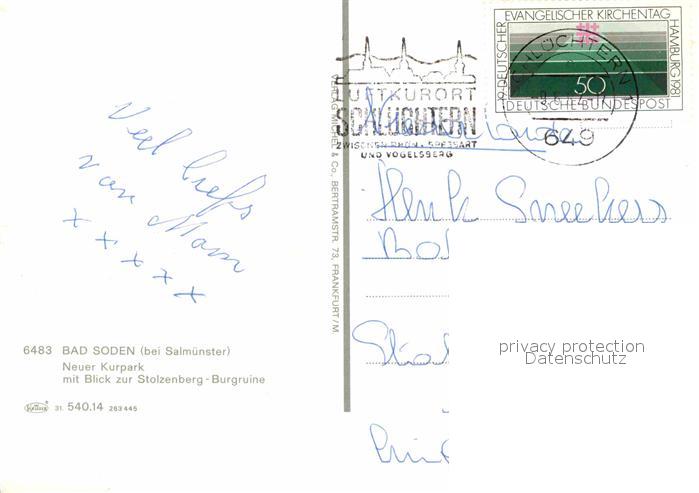 19. DEUTSCHER EVANGELISCHER KIRCHENTAG HAMBURG 1981
50
DEUTSCHE BUNDESPOST
SCHLÜCHTERN
649
LUFTKURORT
SCHLÜCHTERN
ZWISCHEN RHÖN, SPESSART
UND VOGELSBERG
Veel liefs
van Mam
x x x x x
Henk Smeekers
VERLAG MICHEL & Co., BERTRAMSTR. 73, FRANKFURT/M.
privacy protection
Datenschutz
6483 BAD SODEN (bei Salmünster)
Neuer Kurpark
mit Blick zur Stolzenberg-Burgruine
31. 540.14 263445